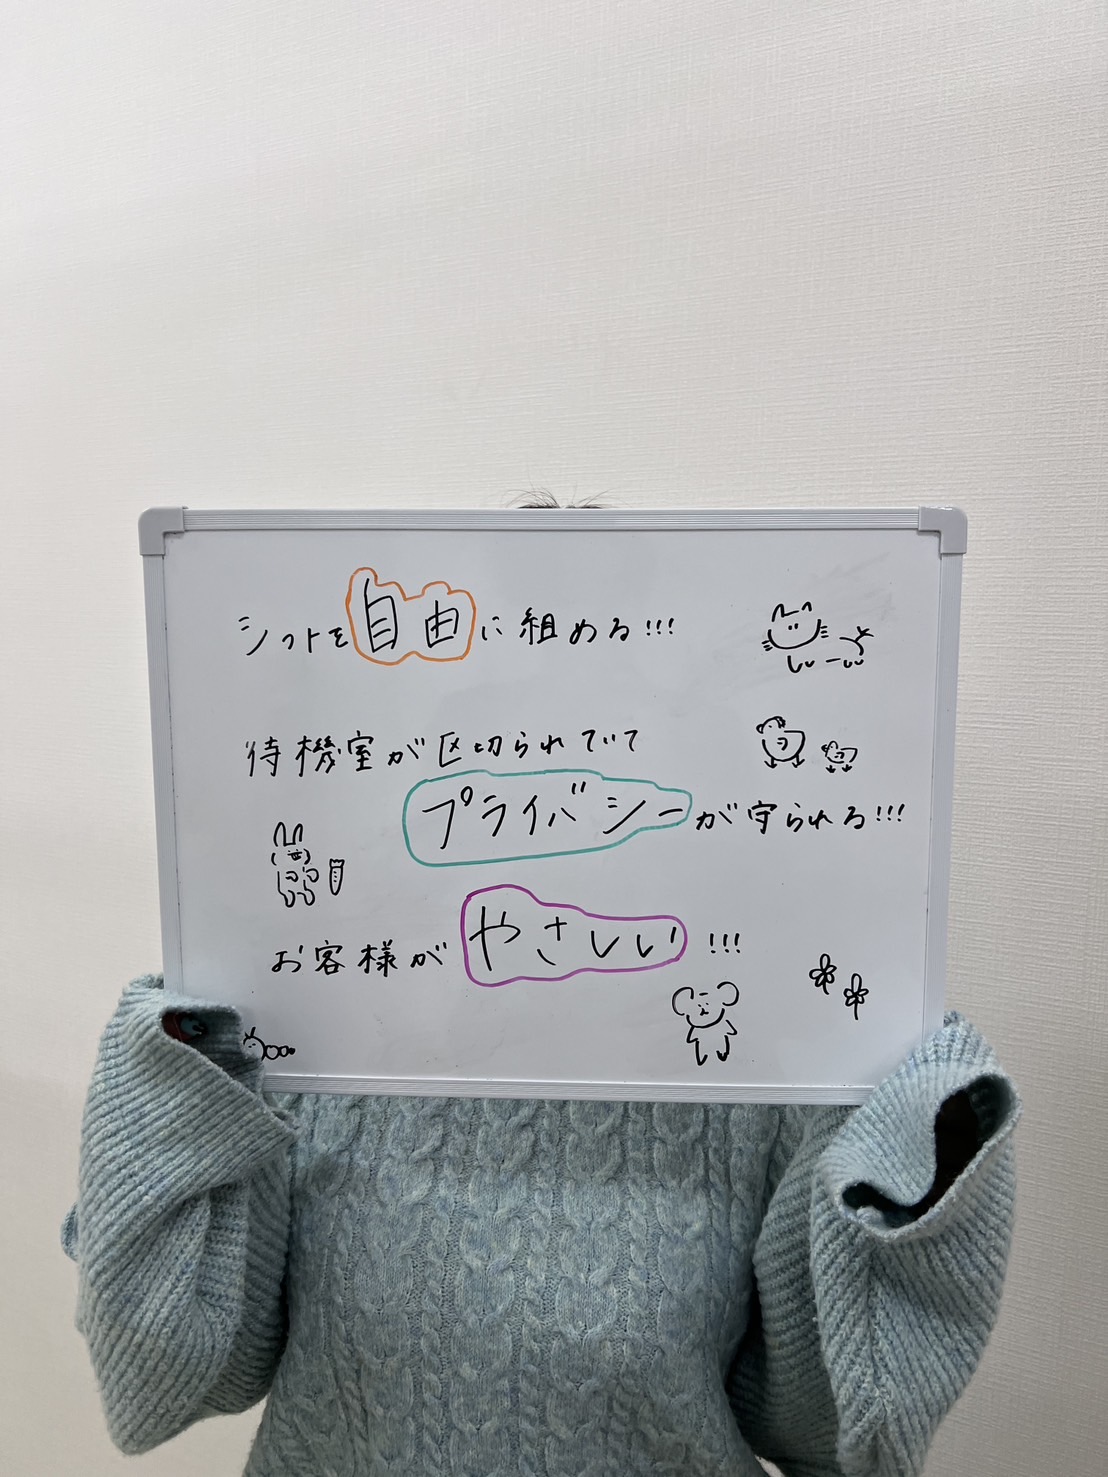 シフトを自由に組める!!!
待機室が区切られていて
プライバシーが守られる!!!
お客様がやさしい!!!